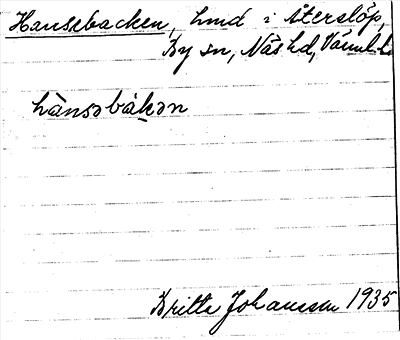 Hansebacken, hmd i Återslöp,
By sn, Näs hd, Värml.
hànsəbàkən
Britta Johansson 1935